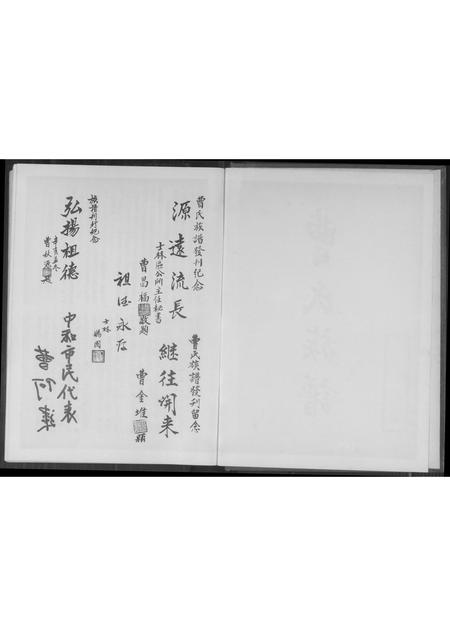 曹氏族譜發刊紀念
源遠流長
士林區公所主任秘書
曹昌福 敬題
曹氏族譜發刊留念
繼往開来
曹金堆 題
祖德永存
士林
族譜刊行紀念
弘揚祖德
中和市民代表
曹阿